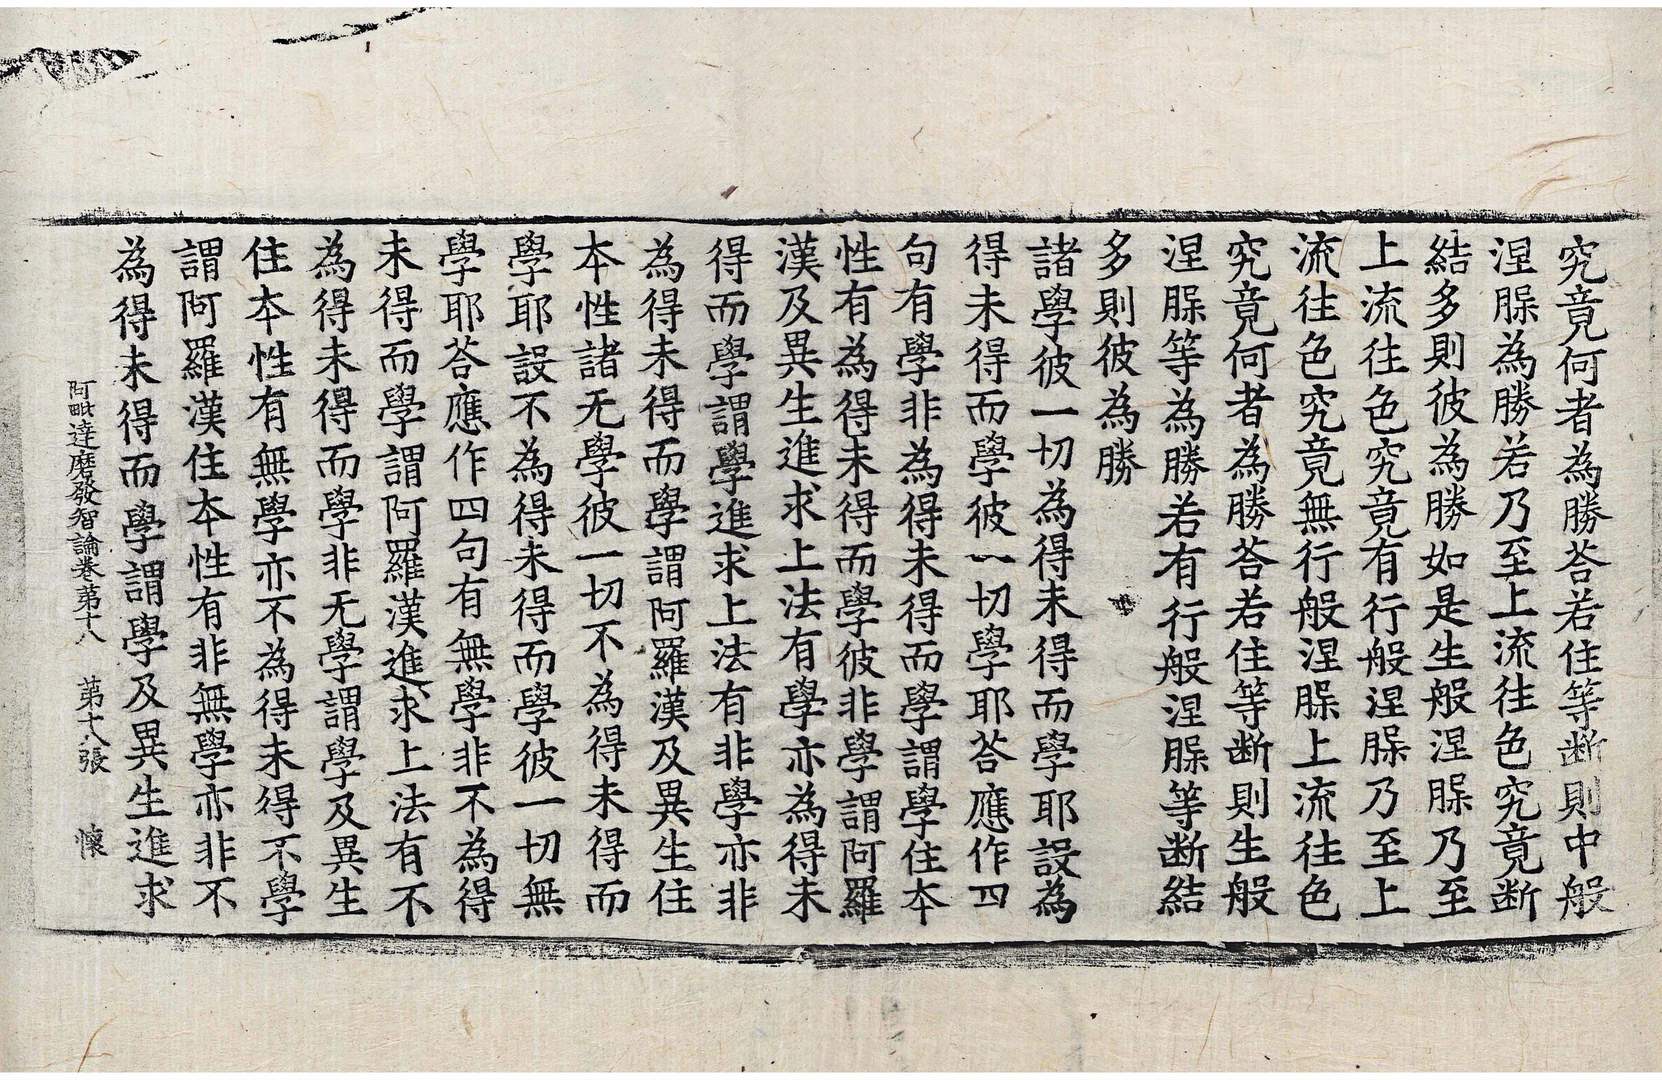 究竟何者為勝荅若住等断則中般
涅腂為勝若乃至上流往色究竟断
結多則彼為勝如是生般涅腂乃至
上流往色究竟有行般涅腂乃至上
流往色究竟無行般涅腂上流往色
究竟何者為勝荅若住等断則生般
涅腂等為勝若有行般涅腂等断結
多則彼為勝
諸學彼一切為得未得而學耶設為
得未得而學彼一切學耶荅應作四
句有學非為得未得而學謂學住本
性有為得未得而學彼非學謂阿羅
漢及異生進求上法有學亦為得未
得而學謂學進求上法有非學亦非
為得未得而學謂阿羅漢及異生住
本性諸无學彼一切不為得未得而
學耶設不為得未得而學彼一切無
學耶荅應作四句有無學非不為得
未得而學謂阿羅漢進求上法有不
為得未得而學非无學謂學及異生
住本性有無學亦不為得未得不學
謂阿羅漢住本性有非無學亦非不
為得未得而學謂學及異生進求
阿毗達磨發智論卷第十八 第十八張 懷